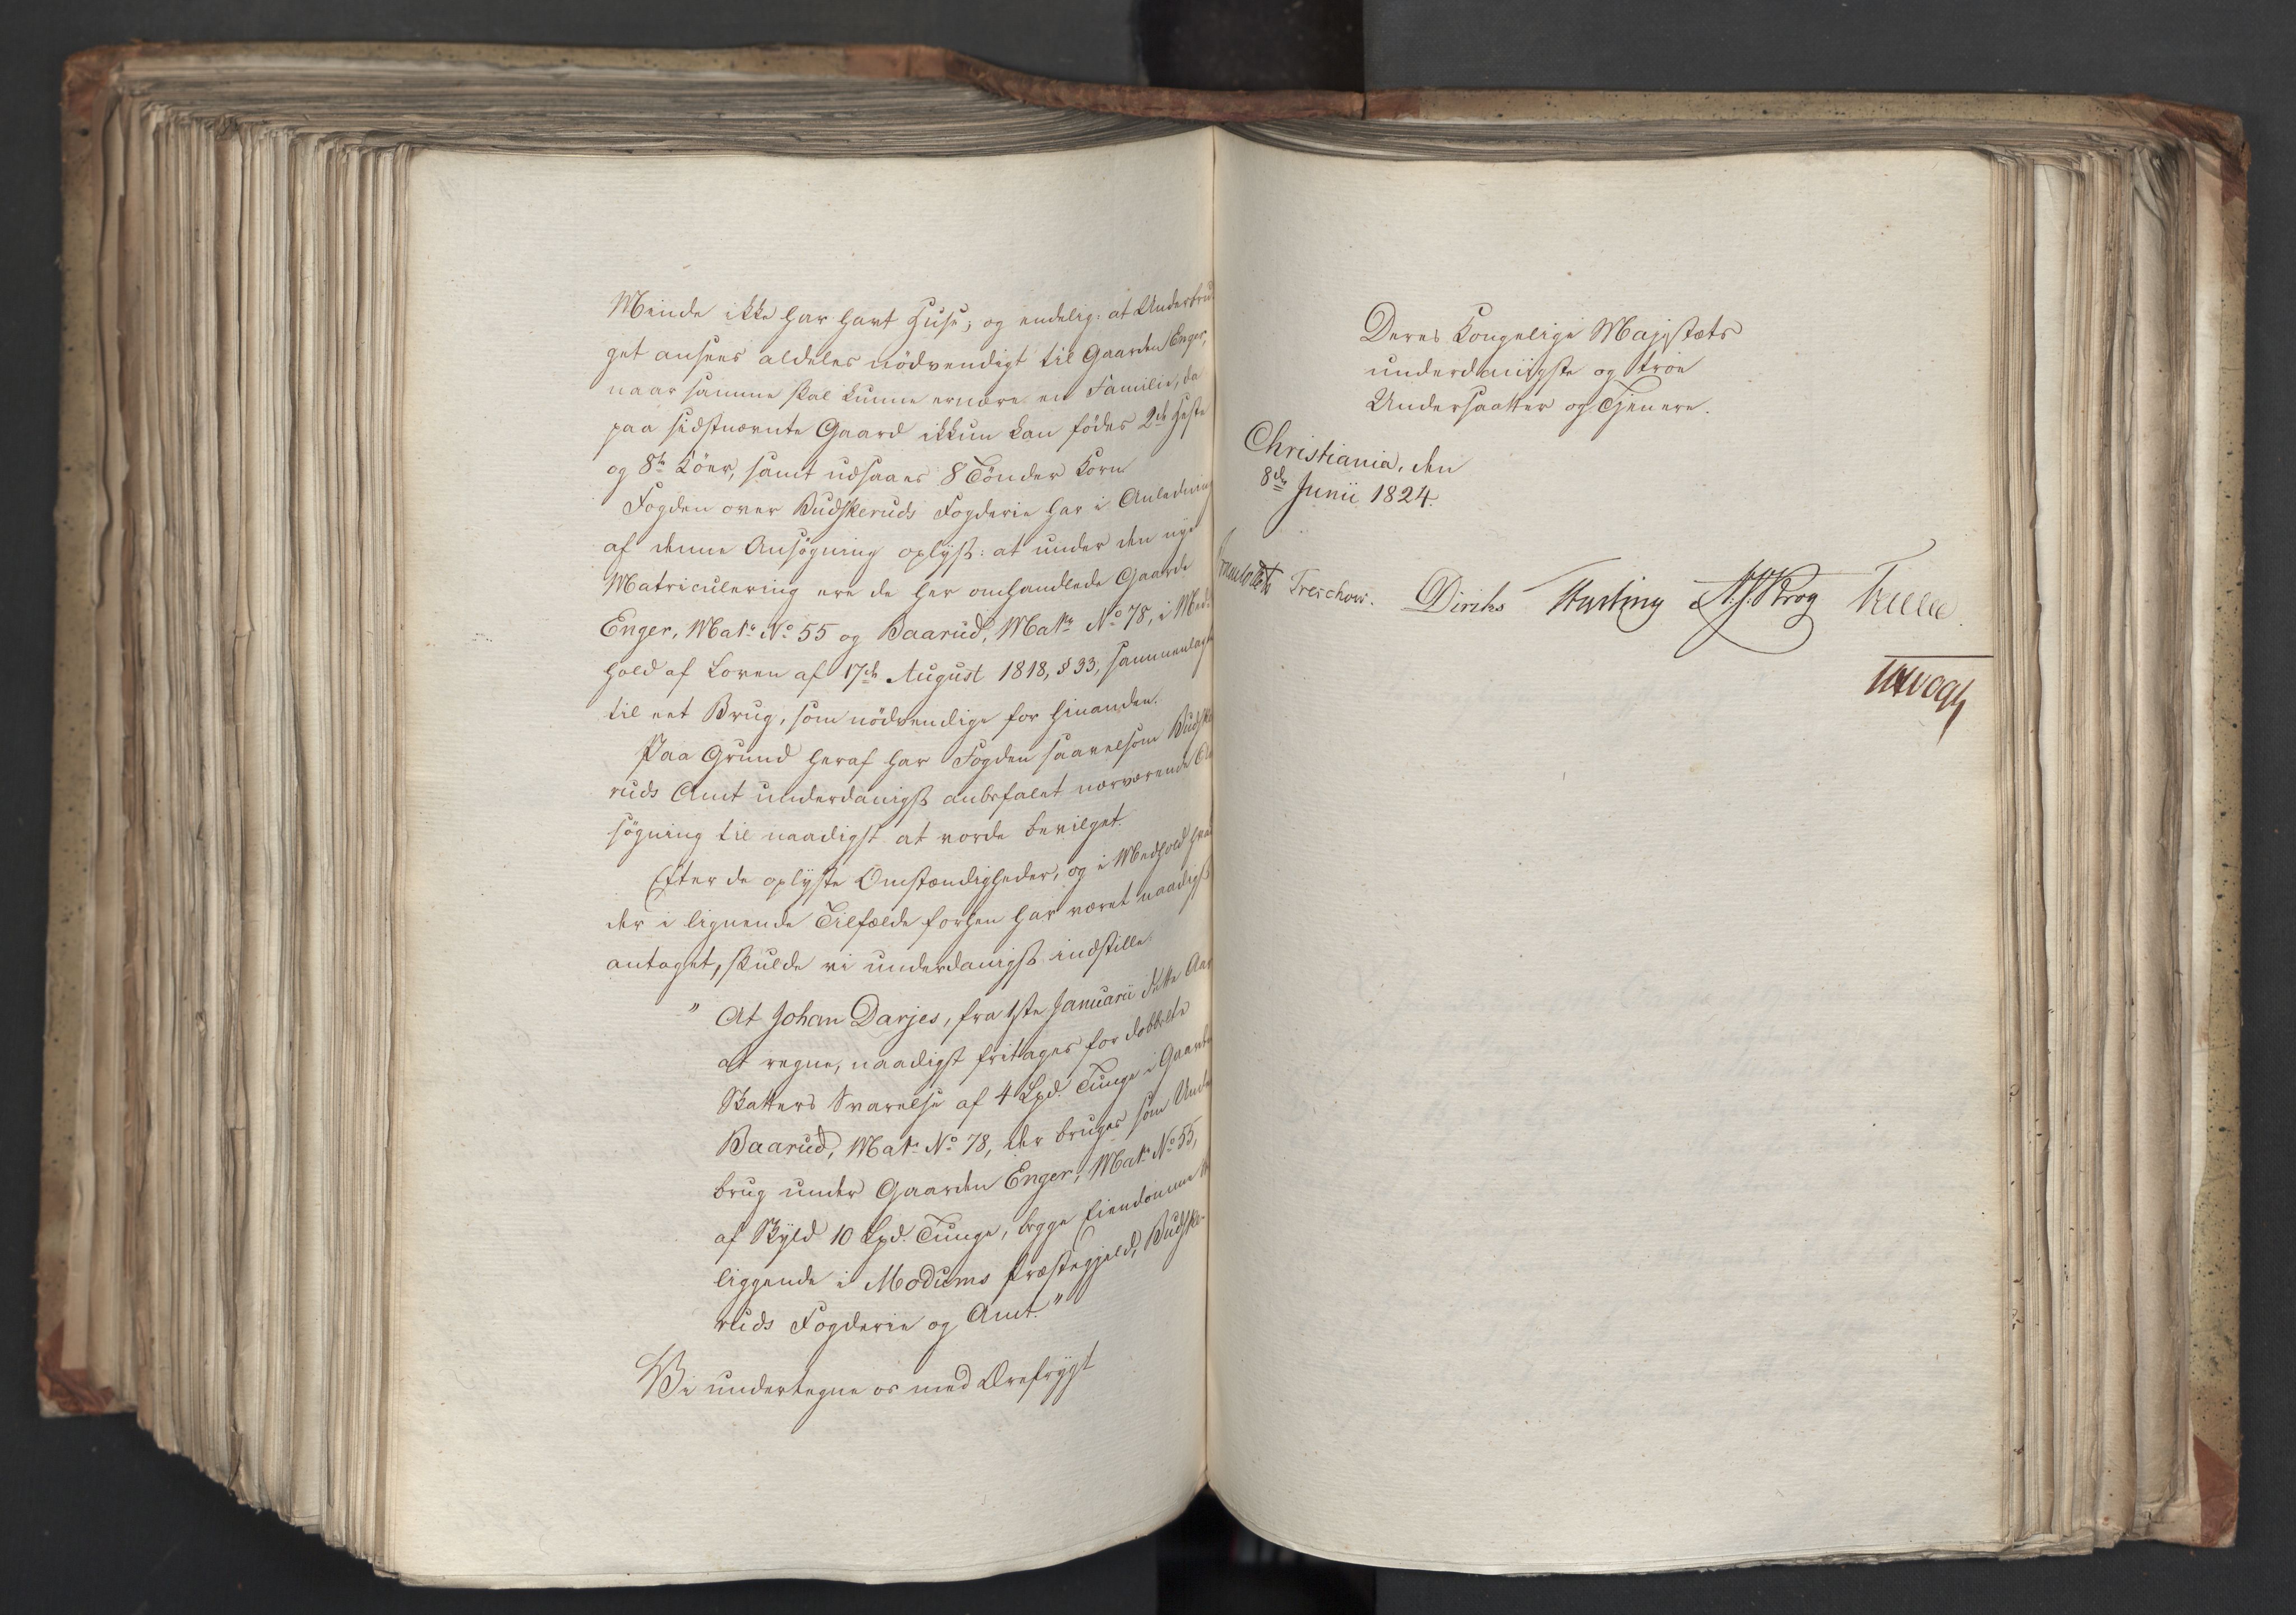 Minde ikke har havt Huse; og endelig: at Underbru-
get ansees aldeles nödvendigt til Gaarden Enger,
naar samme skal kunne ernære en Familie, da
paa sidstnævnte Gaard ikkun kan födes 2de Heste
og 8te Köer, samt udsaaes 8 Tönder Korn
Fogden over Budskeruds Fogderie har i Anledning
af denne Ansögning oplyst: at under den nye
Matriculering ere de her omhandlede Gaarde
Enger, Matr: No 55 og Baarud, Matr: No 78, i Med-
hold af Loven af 17de August 1818, § 33, sammenlagte
til eet Brug, som nödvendige for hinanden.
Paa Grund heraf har Fogden saavelsom Budske-
ruds Amt underdanigst anbefalet nærværende An-
sögning til naadigst at vorde bevilget.
Efter de oplyste Omstændigheder, og i Medhold hvad
der i lignende Tilfælde forhen har været naadigst
antaget, skulde vi underdanigst indstille:
" At Johan Darjes, fra 1ste Januarii dette Aar
at regne, naadigst fritages for dobbelte
Skatters Svarelse af 4 Lpd. Tunge i Gaarden
Baarud, Matr: No 78, der bruges som Under-
brug under Gaarden Enger, Matr: No 55,
af Skyld 10 Lpd. Tunge, begge Eiendomme
liggende i Modums Præstegjeld, Budske-
ruds Fogderie og Amt."
Vi undertegne os med Ærefrygt
Deres Kongelige Majestæts
underdanigste og troe
Undersaatter og Tjenere.
Christiania, den
8de Junii 1824.
Treschow. Diriks Hasting N. J. Krog